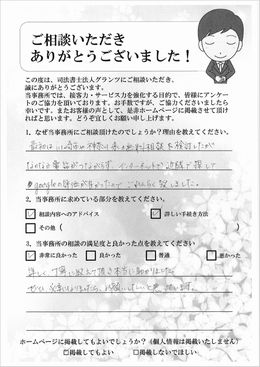 ご相談いただき
ありがとうございました！
この度は、司法書士法人グランツにご相談いただき、
誠にありがとうございます。
当事務所では、接客力・サービス力を強化する目的で、皆様にアンケー
トのご協力を頂いております。お手数ですが、ご協力くださいましたら
幸いです。またお客様の声として、是非ホームページに掲載させて頂け
ればと思います。どうぞ宜しくお願い申し上げます。
1. なぜ当事務所にご相談頂けたのでしょうか？理由を教えてください。
最初は川崎市や神奈川県の無料相談を検討したが
なかなか電話がつながらず、インターネットで近隣で探して
googleの評価が高かったので
2. 当事務所に求めている部分を教えてください。
相談内容へのアドバイス
詳しい手続き方法
その他（
）
3. 当事務所の相談の満足度と良かった点を教えてください
非常に良かった
良かった
普通
悪かった
詳しく、丁寧に教えて頂き本当に助かりました。
ホームページに掲載してもよいでしょうか？（個人情報は掲載いたしません）
掲載してもよい
掲載しないでほしい